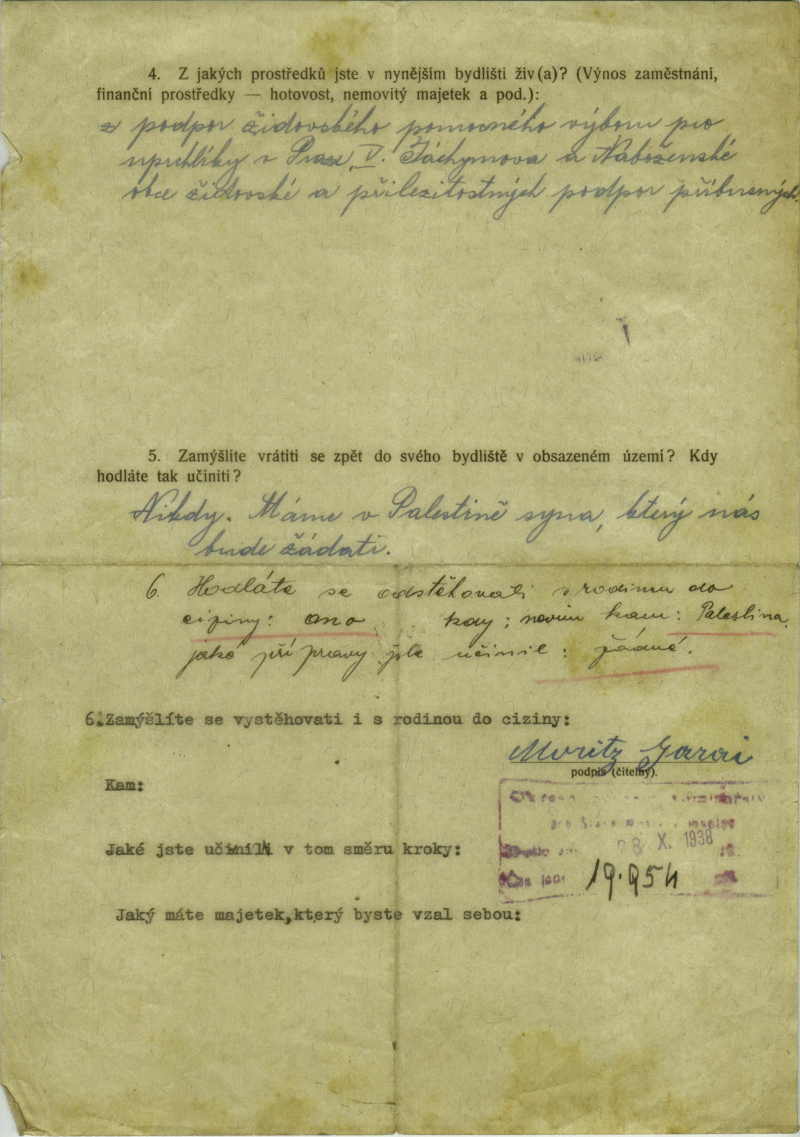 4. Z jakých prostředků jste v nynějším bydlišti živ(a)? (Výnos zaměstnání,
finanční prostředky — hotovost, nemovitý majetek a pod.):
z podpor židovského pomocného výboru pro
uprchlíky v Praze, V. Jáchymova a Náboženské
obce židovské a příležitostných podpor příbuzných.
5. Zamýšlíte vrátiti se zpět do svého bydliště v obsazeném území? Kdy
hodláte tak učiniti?
Nikdy. Máme v Palestině syna, který nás
bude žádati.
6 Hodláte se odstěhovati s rodinou do
ciziny: ano kdy: nevím kam: Palestina,
jaké přípravy jste učinil: žádné.
6.Zamýšlíte se vystěhovati i s rodinou do ciziny:
Moritz Garai
podpis (čitelný).
Kam:
28 X. 1938
Jaké jste učinili v tom směru kroky:
19.954
Jaký máte majetek,který byste vzal sebou: